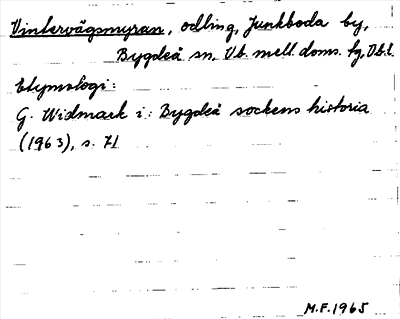 Vintervägsmyran, odling, Junkboda by,
Bygdeå sn, Vb. mell. doms. fg, Vb.l.
Etymologi:
G. Widmark i: Bygdeå sockens historia
(1963), s. 71
M.F. 1965